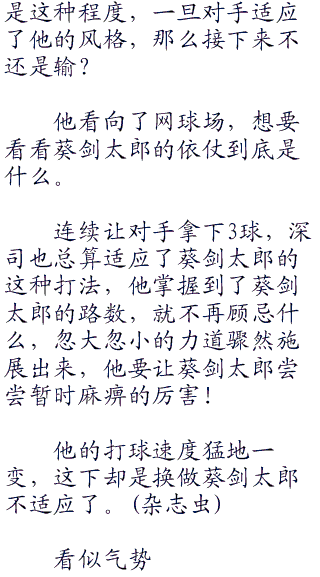 是这种程度，一旦对手适应
了他的风格，那么接下来不
还是输？
他看向了网球场，想要
看看葵剑太郎的依仗到底是
什么。
连续让对手拿下3球，深
司也总算适应了葵剑太郎的
这种打法，他掌握到了葵剑
太郎的路数，就不再顾忌什
么，忽大忽小的力道骤然施
展出来，他要让葵剑太郎尝
尝暂时麻痹的厉害！
他的打球速度猛地一
变，这下却是换做葵剑太郎
不适应了。(杂志虫)
看似气势